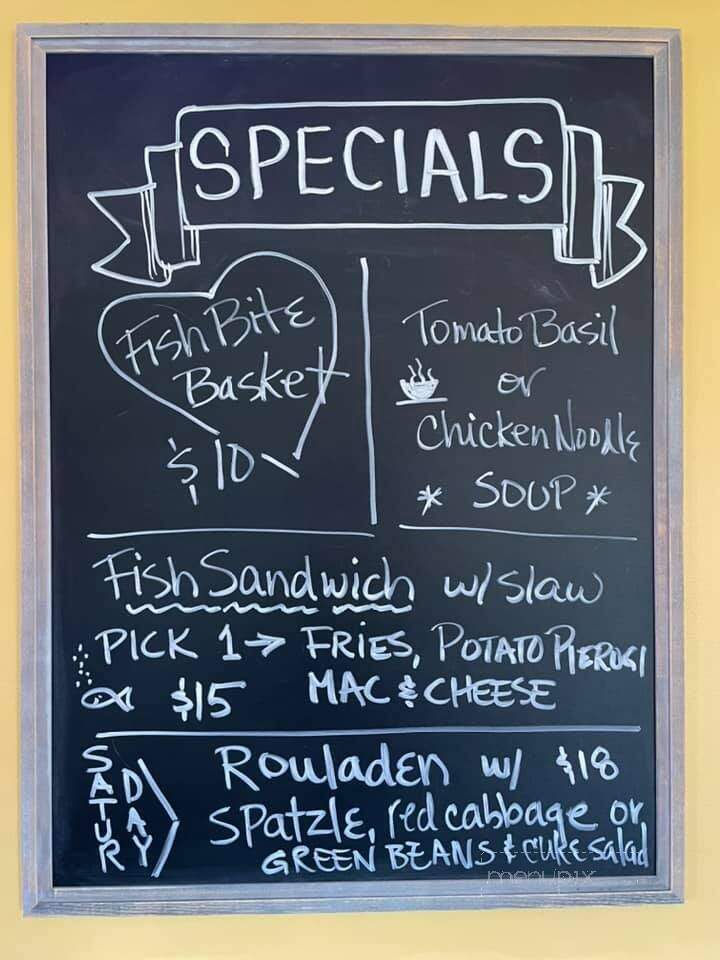 SPECIALS
Fish Bite
Basket
$10
Tomato Basil
or
Chicken Noodle
* SOUP *
Fish Sandwich w/ slaw
PICK 1 → FRIES, POTATO PIEROGI
$15 MAC & CHEESE
SATURDAY
Rouladen w/ $18
Spatzle, red cabbage or
GREEN BEANS & cuke salad
menupix